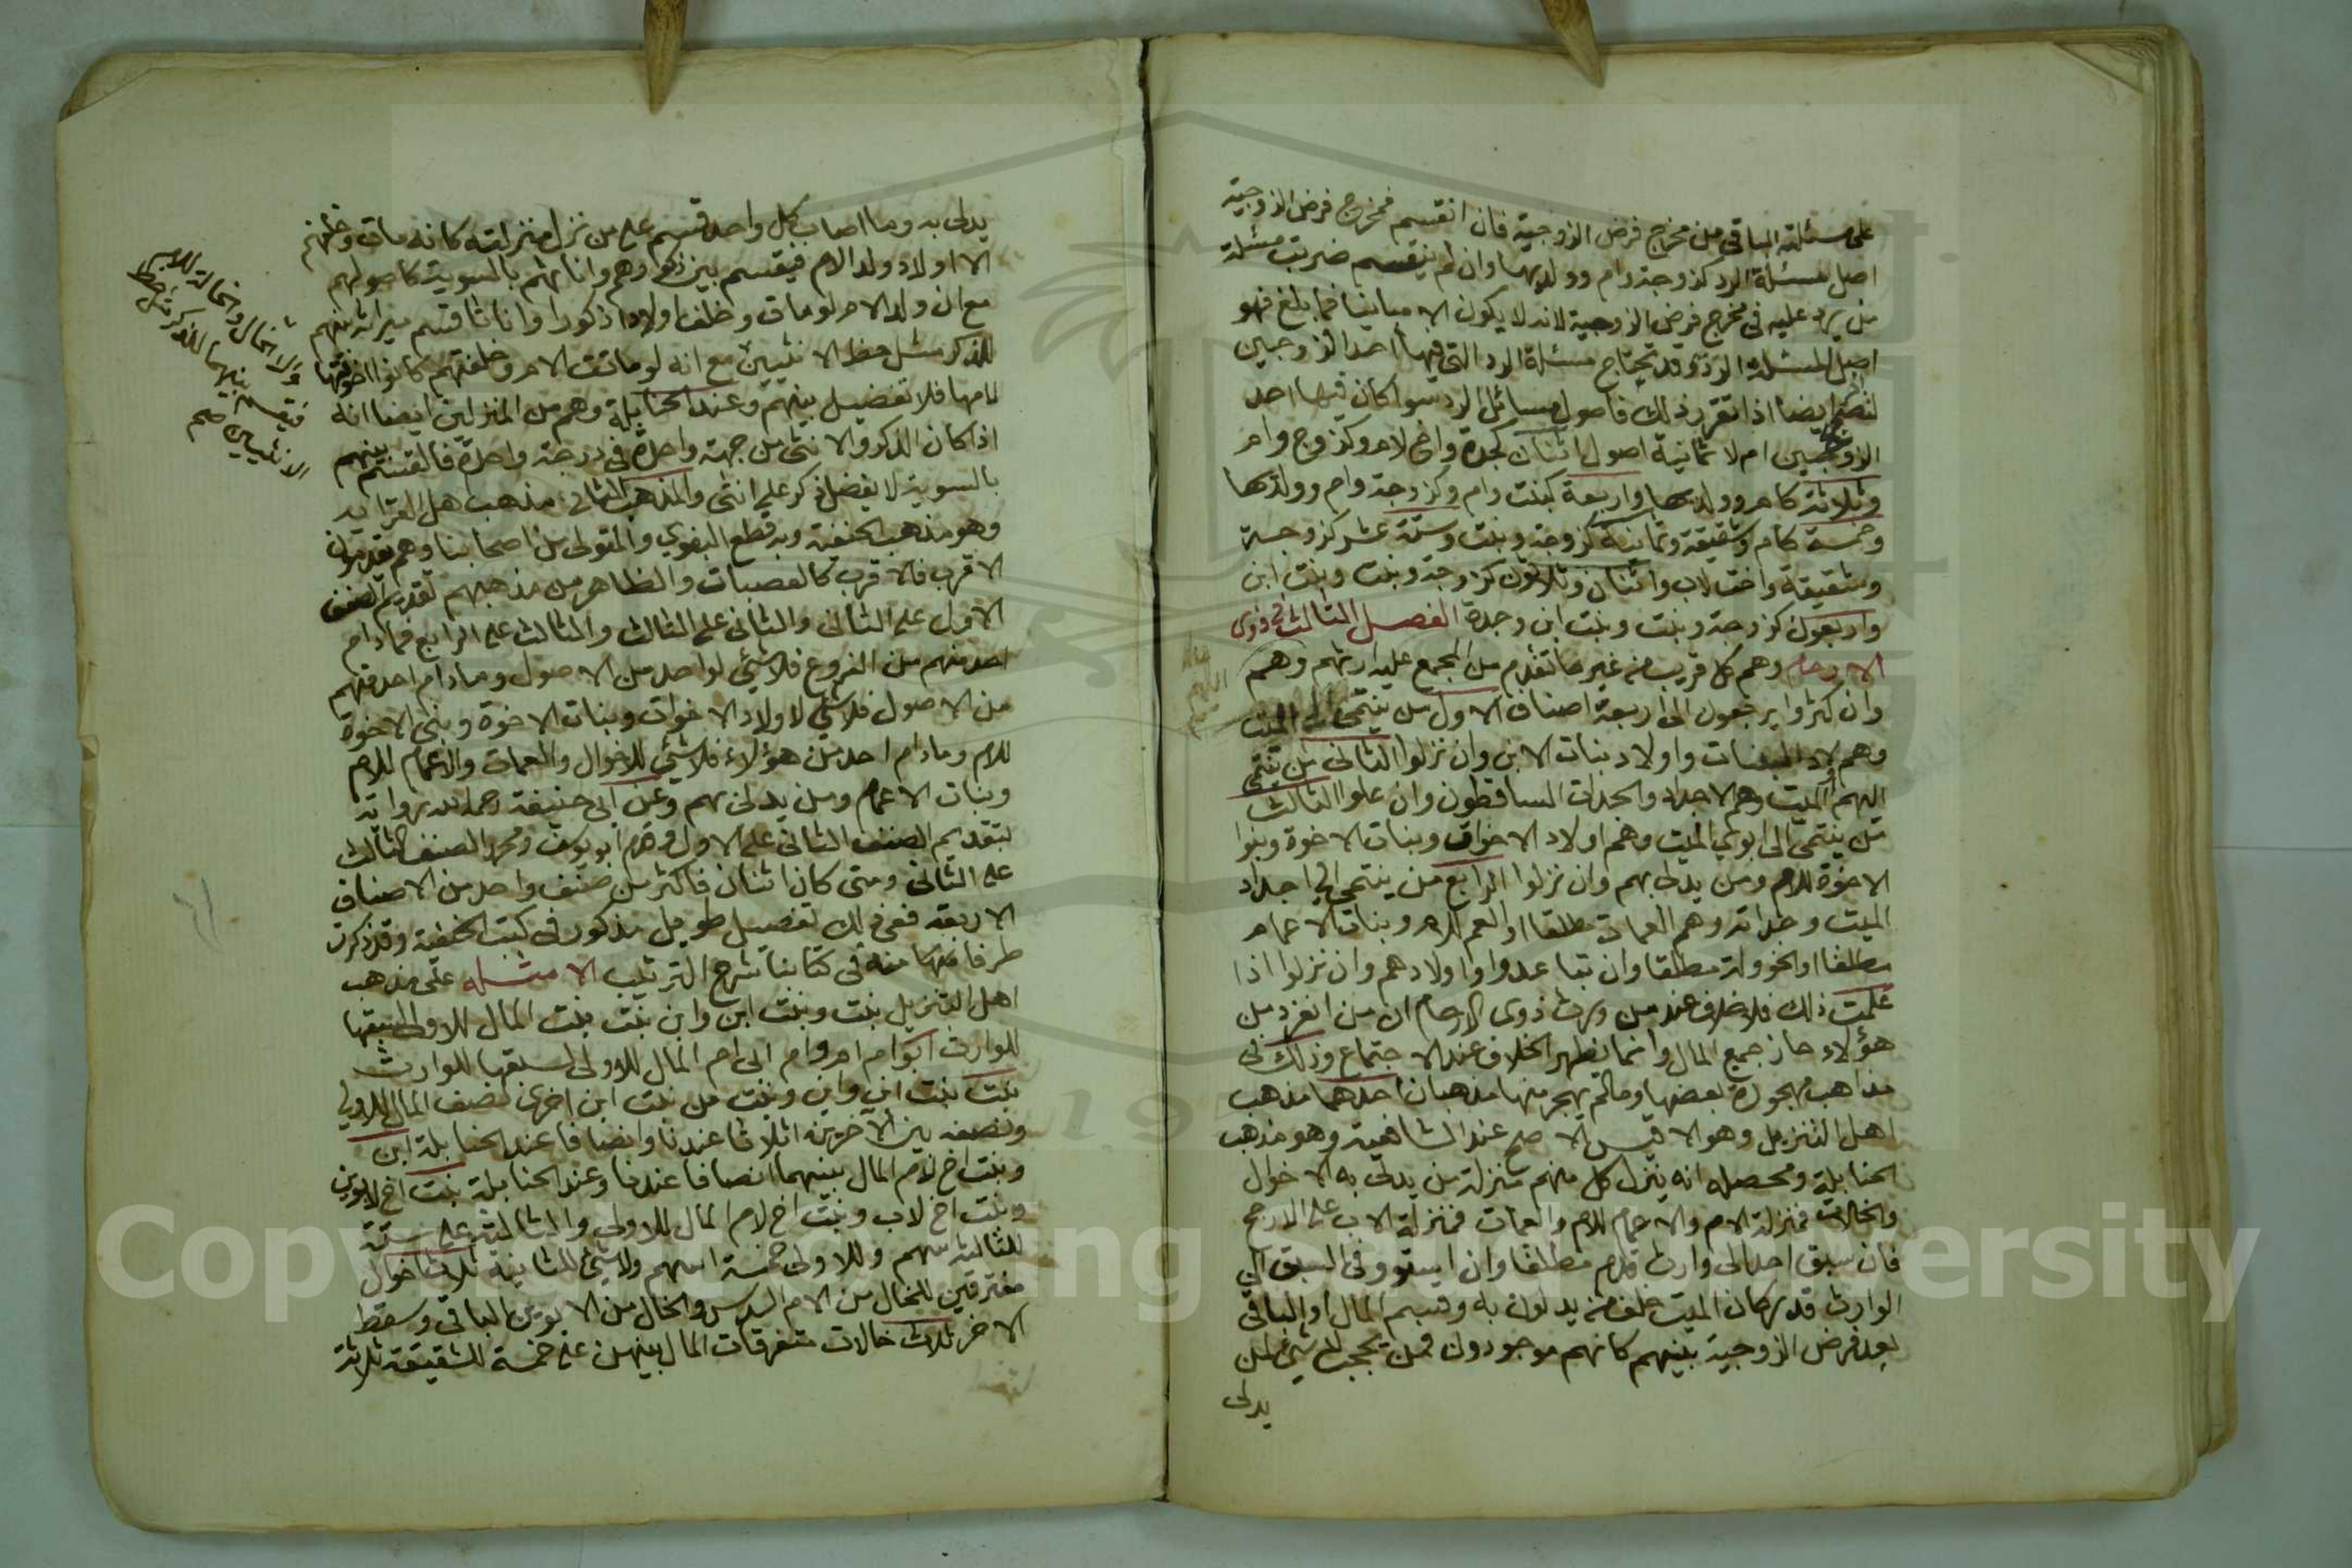 على مسئلة الباقي من مخرج فرض الزوجية فان انقسم فمخرج فرض الزوجية
اصل لمسئلة الرد كزوجة وام وولديها وان لم ينقسم ضربت مسئلة
من يرد عليه في مخرج فرض الزوجية لانه لا يكون الا مباينا فما بلغ فهو
اصل لمسئلة الرد وقد تحتاج مسئلة الرد التي فيها احد الزوجين
لتصحيح ايضا اذا تقرر ذلك فاصول مسائل الرد سوا كان فيها احد
الزوجين ام لا ثمانية اصول اثنان كجدة واخ لام وكزوج وام
وثلاثة كام وولديها واربعة كبنت وام وكزوجة وام وولديها
وخمسة كام وشقيقة وثمانية كزوجة وبنت وستة عشر كزوجة
وشقيقة واخت لاب واثنان وثلاثون كزوجة وبنت وبنت ابن
واربعون كزوجة وبنت وبنت ابن وجدة الفصل الثالث في ذوي
الارحام وهم كل قريب من غير ما تقدم من المجمع عليه ارثهم وهم
وان كثروا يرجعون الى اربعة اصناف الاول من ينتمي الى الميت
وهم اولاد البنات واولاد بنات الابن وان نزلوا الثاني من ينتمي
اليهم الميت وهم الاجداد والجدات الساقطون وان علوا الثالث
من ينتمي الى ابوي الميت وهم اولاد الاخوات وبنات الاخوة وبنوا
الاخوة للام ومن يدلي بهم وان نزلوا الرابع من ينتمي الى اجداد
الميت وجداته وهم العمات مطلقا او العم للام وبنات الاعمام
مطلقا او الخؤولة مطلقا وان تباعدوا واولادهم وان نزلوا اذا
علمت ذلك فلا خلاف عند من ورث ذوي الارحام ان من انفرد من
هؤلاء حاز جميع المال وانما يظهر الخلاف عند الاجتماع وذلك في
مذاهب مهجورة بعضها ومالم يهجر منها مذهبان احدهما مذهب
اهل التنزيل وهو الاقيس الاصح عند الشافعية وهو مذهب
الحنابلة ومحصله انه ينزل كل منهم منزلة من يدلي به الا خوال
والخالات فمنزلة الام والاعمام للام والعمات فمنزلة الاب على الارجح
فان سبق احد الى وارث قدم مطلقا وان استووا في السبق الى
الوارث قدر كان الميت خلف من يدلون به وقسم المال او الباقي
بعد فرض الزوجية بينهم كانهم موجودون فمن يحجب لا شيء لمن
يدلى
يدلى به وما اصاب كل واحد قسم على من نزل منزلته كانه مات وخلفهم
الا اولاد ولد الام فيقسم بين ذكورهم واناثهم بالسوية كاصولهم
مع ان ولد الام لو مات وخلف اولادا ذكورا واناثا قسم ميراثه بينهم
للذكر مثل حظ الانثيين مع انه لو ماتت الام وخلفتهم كانوا اخوتها
لامها فلا تفضيل بينهم وعند الحنابلة وهم من المنزلين ايضا انه
اذا كان الذكر والانثى من جهة واحدة في درجة واحدة فالقسم بينهم
بالسوية لا يفضل ذكر على انثى والمذهب الثاني مذهب اهل القرابة
وهو مذهب الحنفية وبه قطع البغوي والمتولي من اصحابنا وهم يقدمون
الاقرب فالاقرب كالعصبات والظاهر من مذهبهم تقديم الصنف
الاول على الثاني والثاني على الثالث والثالث على الرابع فما دام
احد منهم من الفروع فلا شيء لواحد من الاصول وما دام احد منهم
من الاصول فلا شيء لاولاد الاخوات وبنات الاخوة وبني الاخوة
للام وما دام احد من هؤلاء فلا شيء للاخوال والعمات والاعمام للام
وبنات الاعمام ومن يدلى بهم وعن ابي حنيفة رحمه الله رواية
بتقديم الصنف الثاني على الاول وقدم ابو يوسف ومحمد الصنف الثالث
على الثاني ومتى كان اثنان فاكثر من صنف واحد من الاصناف
الاربعة ففي ذلك تفصيل طويل مذكور في كتب الحنفية وقد ذكرت
طرفا منه في كتابنا شرح الترتيب الامثلة على مذهب
اهل التنزيل بنت وبنت ابن وابن بنت بنت المال للاولى لسبقها
للوارث ابو ام ام وام ابي ام المال للاولى لسبقها للوارث
بنت بنت ابن وابن وبنت من بنت ابن اخرى نصف المال للاولى
ونصفه بين الاخرين اثلاثا عندنا وانصافا عند الحنابلة ابن
وبنت اخ لام المال بينهما انصافا عندنا وعند الحنابلة بنت اخ لابوين
وبنت اخ لاب وبنت اخ لام المال للاولى والثالثة على ستة
للثالثة سهم وللاولى خمسة اسهم ولا شيء للثانية ثلاث اخوال
مفترقين للخال من الام السدس والخال من الابوين الباقي وسقط
الاخر ثلاث خالات متفرقات المال بينهن على خمسة للشقيقة ثلاثة
والا الخال والخالة للام
فيقسم بينهما للذكر مثل حظ
الانثيين صح